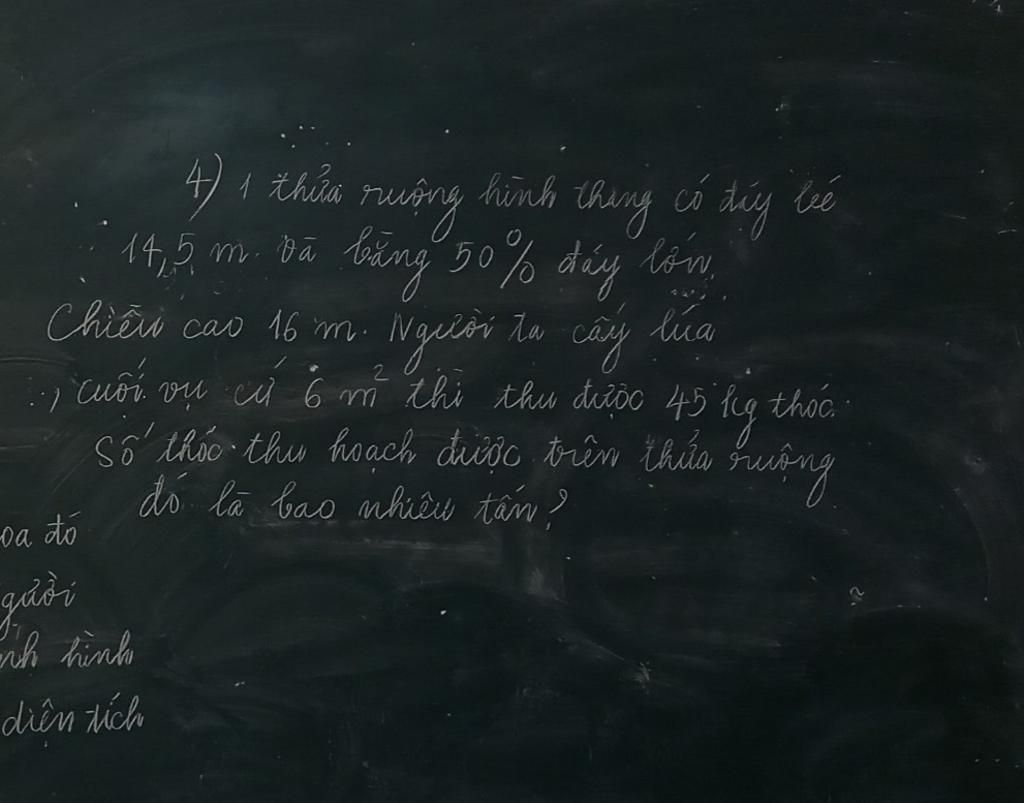 4) 1 thửa ruộng hình thang có đáy bé
14,5 m và bằng 50% đáy lớn.
Chiều cao 16 m. Người ta cấy lúa
, cuối vụ cứ 6 m² thì thu được 45 kg thóc.
Số thóc thu hoạch được trên thửa ruộng
đó là bao nhiêu tấn?
oa đó
gười
nh hình
diện tích